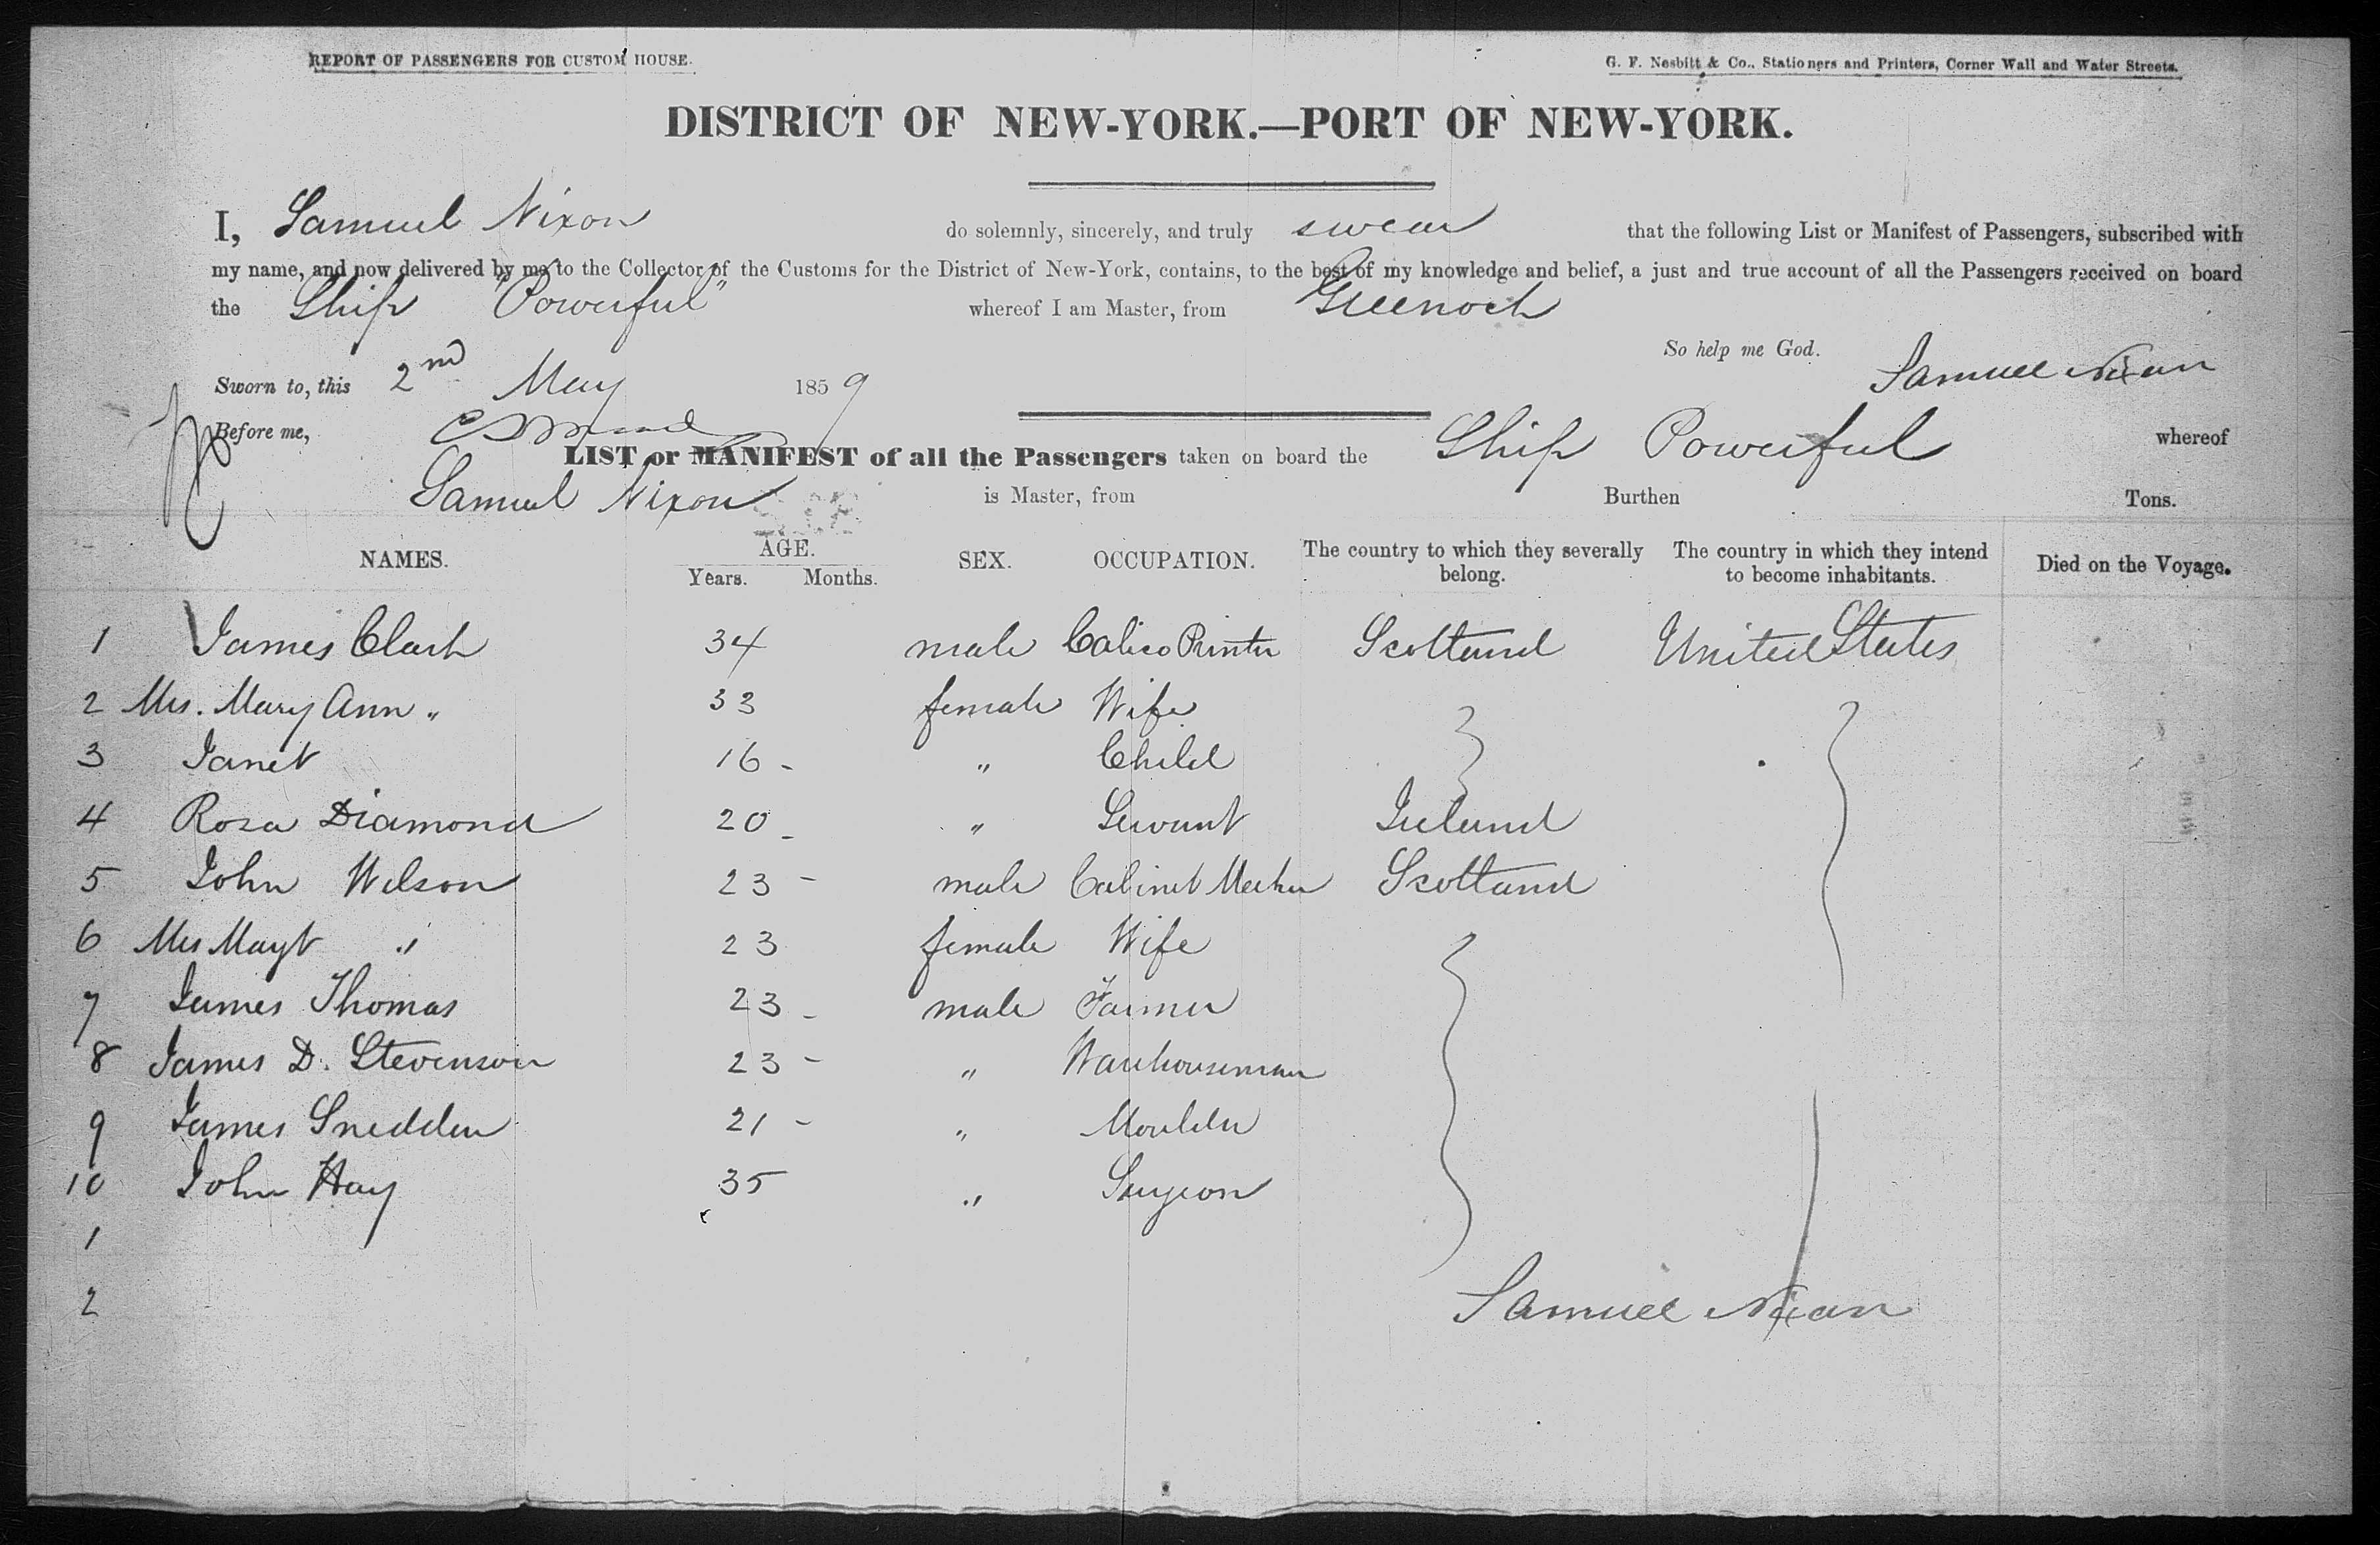 REPORT OF PASSENGERS FOR CUSTOM HOUSE.
G. F. Nesbitt & Co., Stationers and Printers, Corner Wall and Water Streets.
DISTRICT OF NEW-YORK.—PORT OF NEW-YORK.
I, Samuel Nixon do solemnly, sincerely, and truly swear that the following List or Manifest of Passengers, subscribed with
my name, and now delivered by me to the Collector of the Customs for the District of New-York, contains, to the best of my knowledge and belief, a just and true account of all the Passengers received on board
the Ship "Powerful" whereof I am Master, from Greenock
So help me God. Samuel Nixon
Sworn to, this 2nd May 1859
Before me,
LIST or MANIFEST of all the Passengers taken on board the Ship Powerful whereof
Samuel Nixon is Master, from Burthen Tons.
NAMES. AGE. Years. Months. SEX. OCCUPATION. The country to which they severally belong. The country in which they intend to become inhabitants. Died on the Voyage.
1 James Clark 34 male Calico Printer Scotland United States
2 Mrs. Mary Ann " 33 female Wife
3 Janet 16 - " Child
4 Rosa Diamond 20 - " Servant Ireland
5 John Wilson 23 - male Cabinet Maker Scotland
6 Mrs Magt " 23 female Wife
7 James Thomas 23 - male Farmer
8 James D. Stevenson 23 - " Warehouseman
9 James Snedden 21 - " Moulder
10 John Hay 35 " Surgeon
1
2
Samuel Nixon